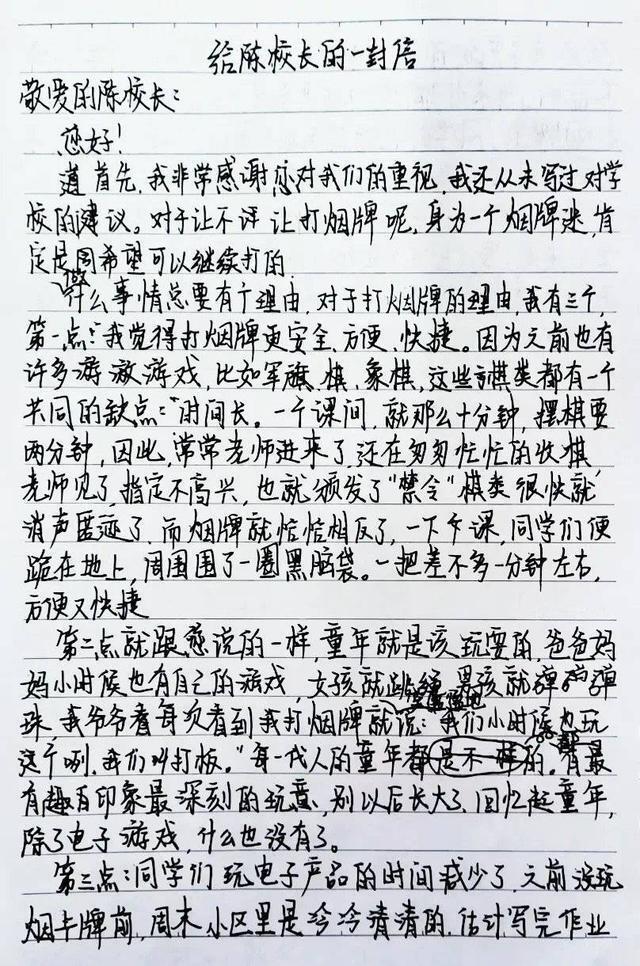 给陈校长的一封信
敬爱的陈校长:
您好!
首先,我非常感谢您对我们的重视,我还从未写过对学
校的建议。对于让不让打烟牌呢,身为一个烟牌迷,肯
定是希望可以继续打的
什么事情总要有个理由,对于打烟牌的理由,我有三个,
第一点:我觉得打烟牌更安全、方便、快捷。因为之前也有
许多游戏,比如军旗、棋、象棋,这些棋类都有一个
共同的缺点:时间长。一个课间,就那么十分钟,摆棋要
两分钟,因此,常常老师进来了,还在匆匆忙忙的收棋
老师见了,指定不高兴,也就颁发了“禁令”棋类很快就
消声匿迹了,而烟牌就恰恰相反了,一下课,同学们便
跪在地上,周围围了一圈黑脑袋。一把差不多一分钟左右,
方便又快捷
第二点就跟您说的一样,童年就是该玩耍的,爸爸妈
妈小时候也有自己的游戏,女孩就跳绳,男孩就弹弹
珠,我爷爷看每次看到我打烟牌就说:“我们小时候也玩
这个咧,我们叫打板。”每一代人的童年都是不一样的。有最
有趣百印象最深刻的玩意,别以后长大了,回忆起童年,
除了电子游戏,什么也没有了。
第三点:同学们玩电子产品的时间减少了,之前没玩
烟卡牌前,周末小区里是冷冷清清的,估计写完作业